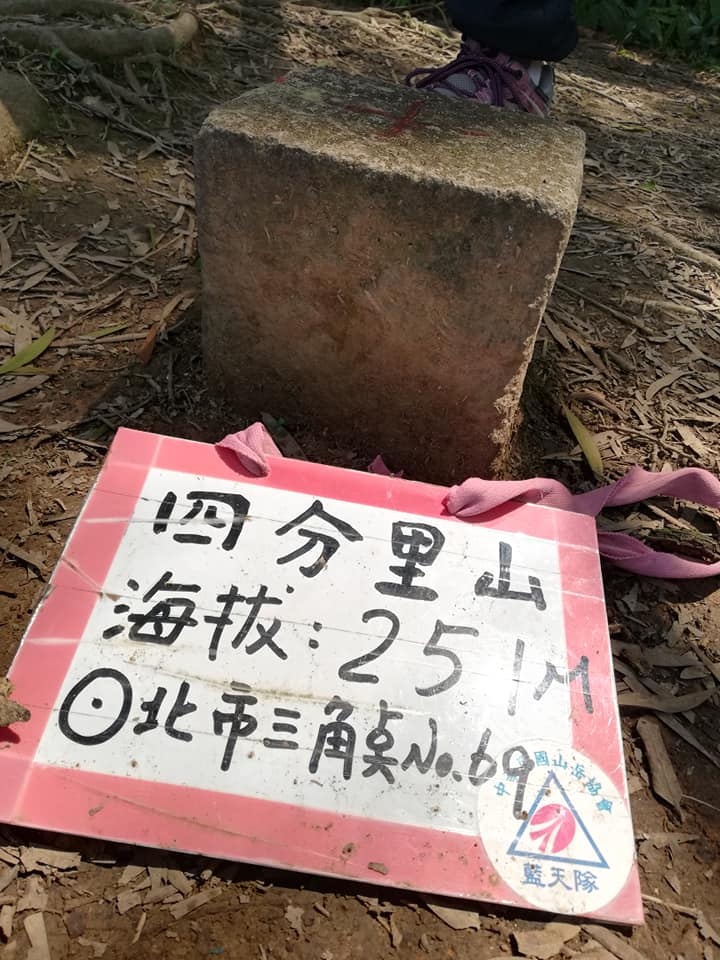 四分里山
海拔:251M
⊙北市三角点No.69
中華民國山岳協會
藍天隊